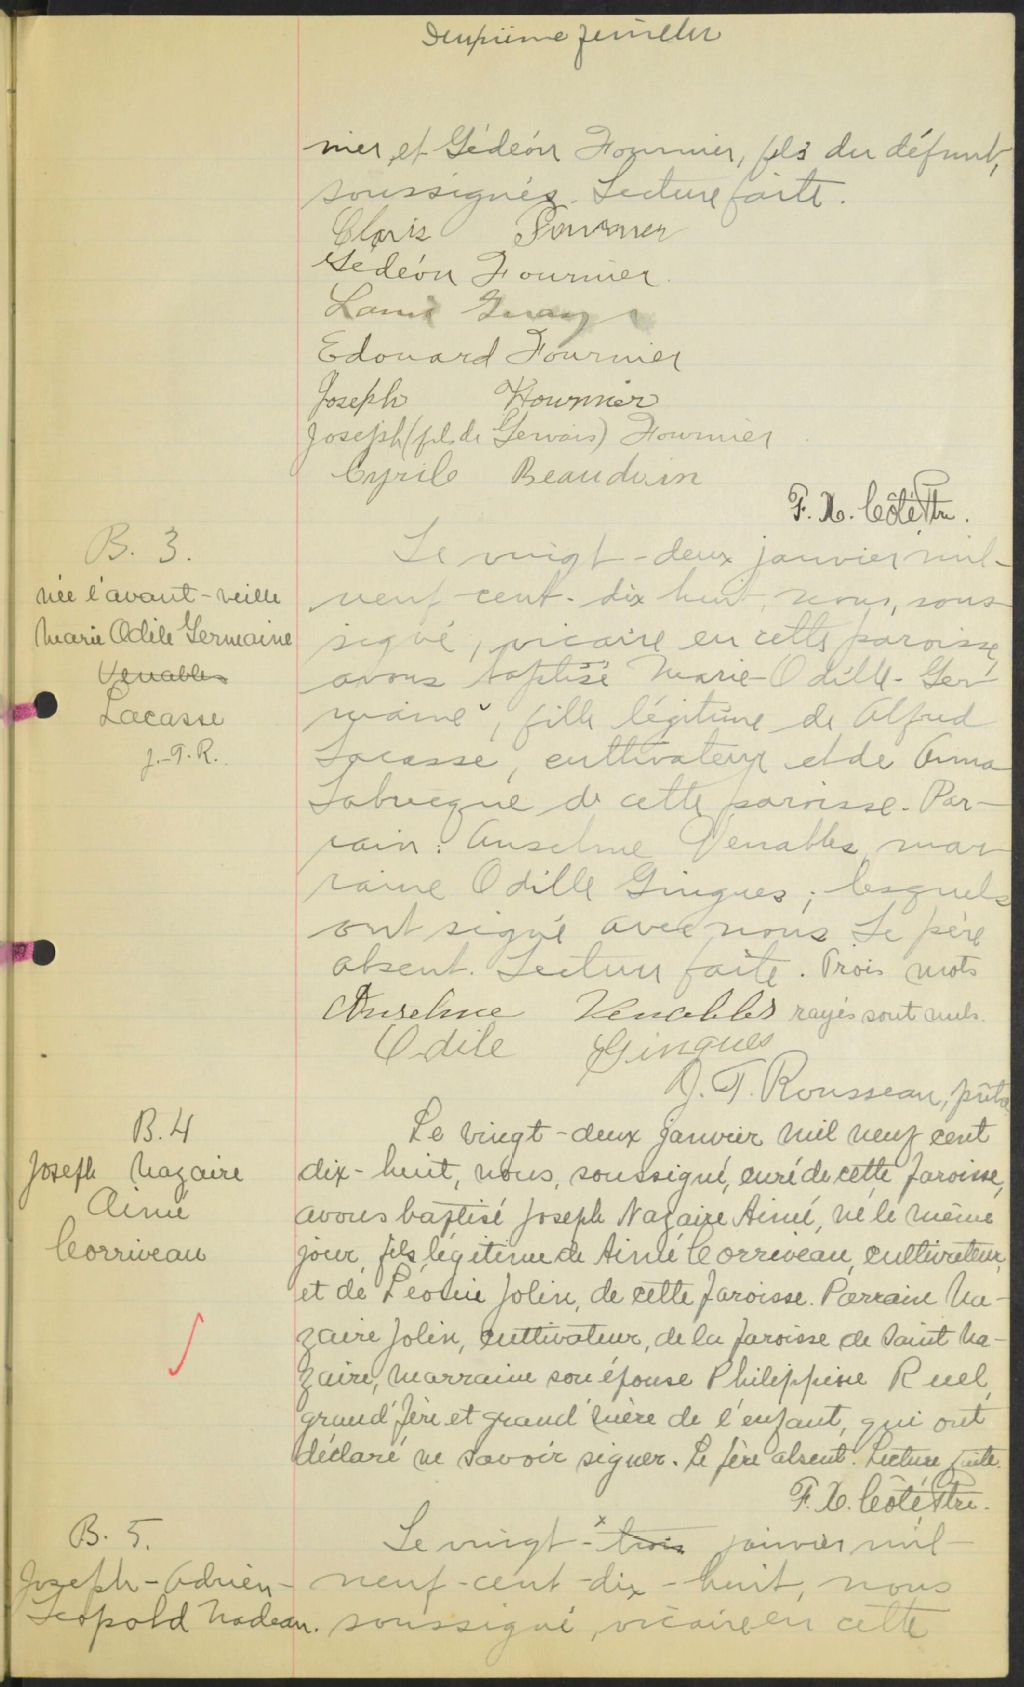 Deuxième feuillet
nier, et Gédéon Fournier, fils du défunt,
soussignés. Lecture faite.
Cloris Fournier
Gédéon Fournier
Guay
Edouard Fournier
Joseph Fournier
Joseph (fils de Gervais) Fournier
Cyrile Beaudoin
F. X. Côté Ptre.
B. 3.
née l'avant-veille
Marie Odile Germaine
Venables
Lacasse
J.-T. R.
Le vingt-deux janvier mil-
neuf-cent-dix huit, nous, sous
signé, vicaire en cette paroisse,
avons baptisé Marie-Odille-Ger
maine, fille légitime de Alfred
Lacasse, cultivateur et de Anna
Labrecque de cette paroisse. Par-
rain: Anselme Venables, mar
raine Odille Gingues; lesquels
ont signé avec nous. Le père
absent. Lecture faite. Trois mots
rayés sont nuls.
Anselme Venables
Odile Gingues
J. T. Rousseau, ptre
B. 4
Joseph Nazaire
Aimé
Corriveau
Le vingt-deux janvier mil neuf cent
dix-huit, nous, soussigné, curé de cette paroisse,
avons baptisé Joseph Nazaire Aimé, né le même
jour, fils légitime de Aimé Corriveau, cultivateur,
et de Léonie Jolin, de cette paroisse. Parrain Na-
zaire Jolin, cultivateur, de la paroisse de Saint Na-
zaire, marraine son épouse Philippine Ruel,
grand'père et grand'mère de l'enfant, qui ont
déclaré ne savoir signer. Le père absent. Lecture faite.
F. X. Côté Ptre.
B. 5.
Joseph-Adrien-
Léopold Nadeau.
Le vingt-trois janvier mil-
neuf-cent-dix-huit, nous
soussigné, vicaire en cette